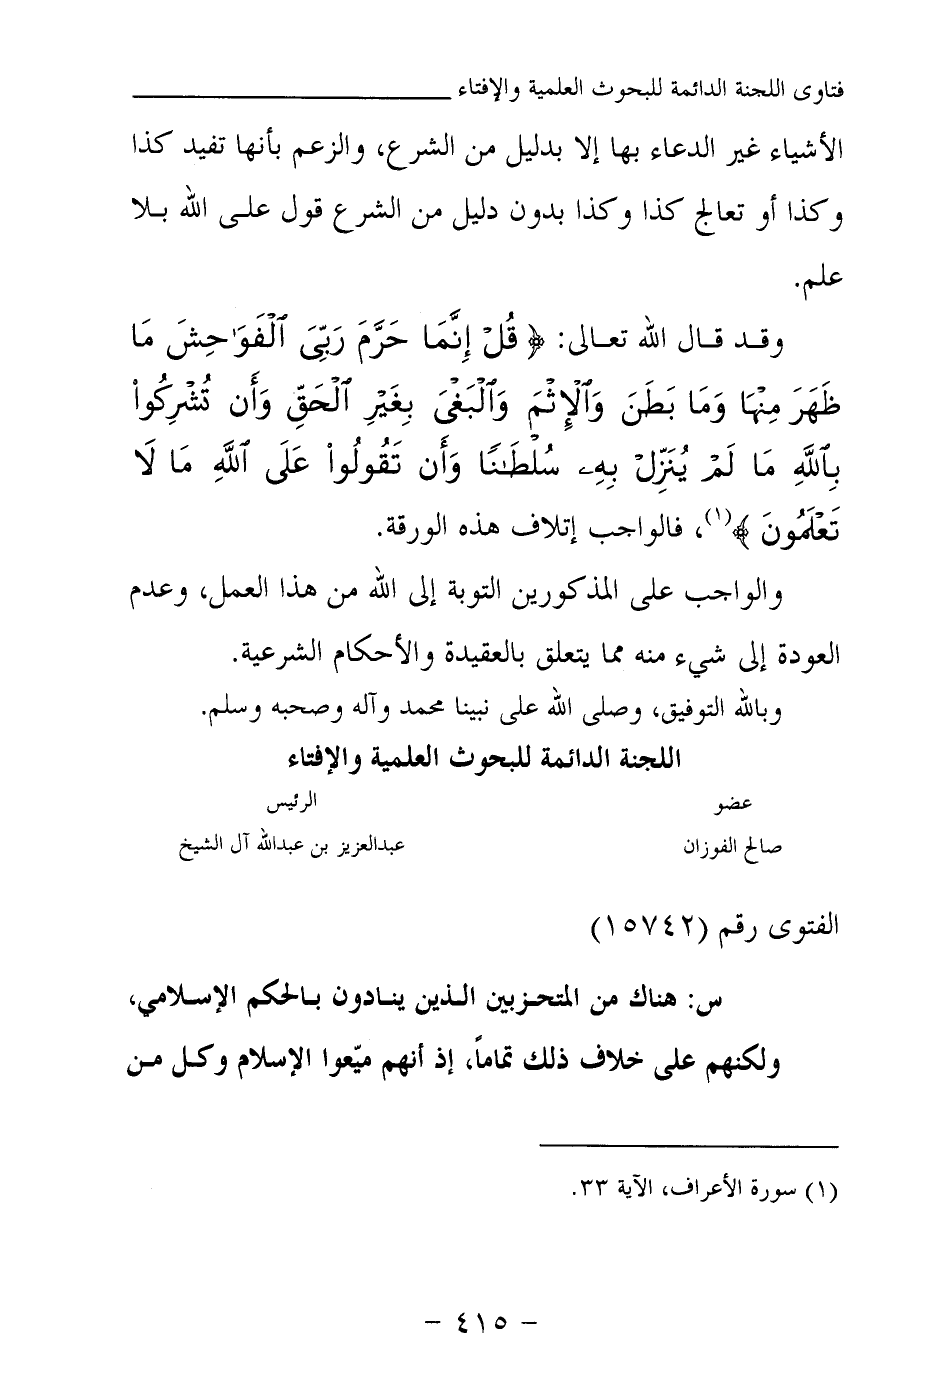 فتاوى اللجنة الدائمة للبحوث العلمية والإفتاء
الأشياء غير الدعاء بها إلا بدليل من الشرع، والزعم بأنها تفيد كذا
وكذا أو تعالج كذا وكذا بدون دليل من الشرع قول على الله بلا
علم.
وقد قال الله تعالى: ﴿ قُلْ إِنَّمَا حَرَّمَ رَبِّيَ ٱلْفَوَٰحِشَ مَا
ظَهَرَ مِنْهَا وَمَا بَطَنَ وَٱلْإِثْمَ وَٱلْبَغْيَ بِغَيْرِ ٱلْحَقِّ وَأَن تُشْرِكُوا۟
بِٱللَّهِ مَا لَمْ يُنَزِّلْ بِهِۦ سُلْطَٰنًا وَأَن تَقُولُوا۟ عَلَى ٱللَّهِ مَا لَا
تَعْلَمُونَ ﴾(١)، فالواجب إتلاف هذه الورقة.
والواجب على المذكورين التوبة إلى الله من هذا العمل، وعدم
العودة إلى شيء منه مما يتعلق بالعقيدة والأحكام الشرعية.
وبالله التوفيق، وصلى الله على نبينا محمد وآله وصحبه وسلم.
اللجنة الدائمة للبحوث العلمية والإفتاء
عضو الرئيس
صالح الفوزان عبدالعزيز بن عبدالله آل الشيخ
الفتوى رقم (١٥٧٤٢)
س: هناك من المتحزبين الذين ينادون بالحكم الإسلامي،
ولكنهم على خلاف ذلك تماماً، إذ أنهم ميّعوا الإسلام وكل من
(١) سورة الأعراف، الآية ٣٣.
- ٤١٥ -